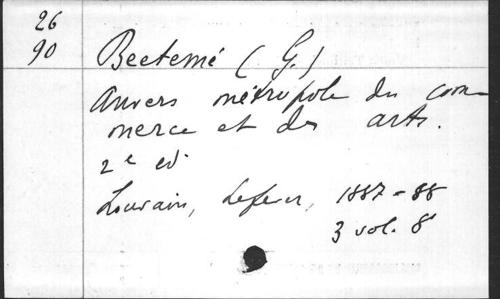 26
90
Beetemé (G.)
Anvers métropole du com
merce et des arts.
2e ed.
Louvain, Lefever, 1887-88
3 vol. 8°